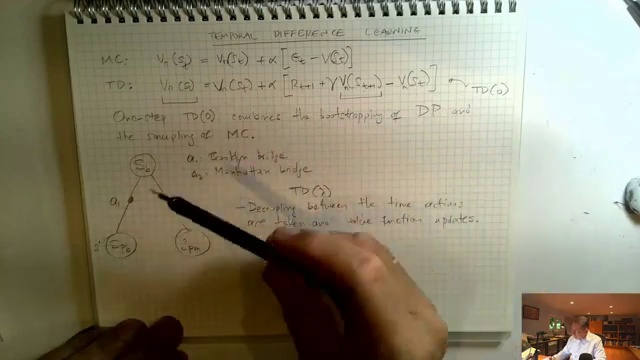 TEMPORAL DIFFERENCE LEARNING
MC: Vπ(St) = Vπ(St) + α [Gt − V(St)]
TD: Vπ(St) = Vπ(St) + α [Rt+1 + γ Vπ(St+1) − Vπ(St)]
TD(0)
One-step TD(0) combines the bootstrapping of DP and
the sampling of MC.
S0
a1: Brooklyn bridge
a2: Manhattan bridge
TD(λ)
a1
– Decoupling between the time actions
are taken and value function updates.
2pm